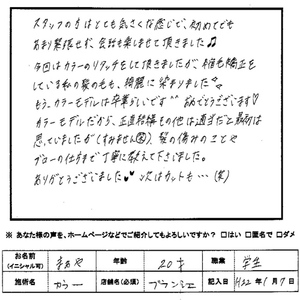 スタッフの方はとても気さくな感じで、初めてでも
あまり緊張せず、会話も楽しませて頂きました♫
今回はカラーのリタッチをして頂きましたが、縮毛矯正を
している私の髪の毛も、綺麗に染まりました
もう、カラーモデルは卒業らしいです おめでとうございます♡
カラーモデルだから、正直技術その他は適当だと最初は
思っていましたが(すみません)、髪の傷みのことや
ブローの仕方まで丁寧に教えて下さいました。
ありがとうございました♥ 次はカットも…(笑)
※ あなた様の声を、ホームページなどでご紹介してもよろしいですか? □はい □匿名で □ダメ
お名前 (イニシャル可) 年齢 20才 職業 学生
施術名 カラー 店舗名(必須) ブランシェ 記入日 H22年1月7日